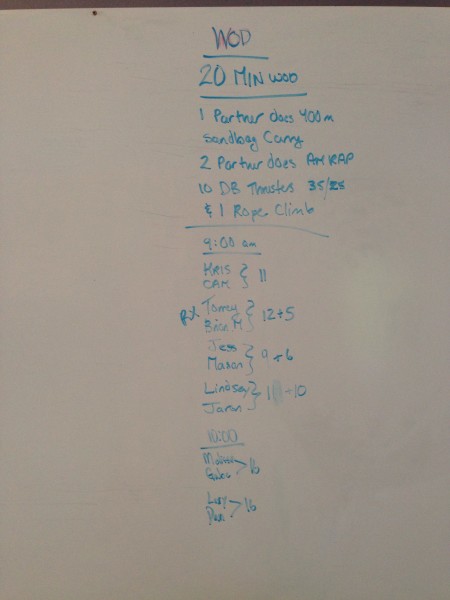 WOD
20 MIN WOD
1 Partner does 400m
sandbag Carry
2 Partner does AMRAP
10 DB Thrusters 35/25
& 1 Rope Climb
9:00 am
KRIS
CAM } 11
RX Torrey
Brian M } 12+5
Jess
Mason } 9+6
Lindsay
Jaron } 1 +10
10:00
> 16
Lucy
> 16